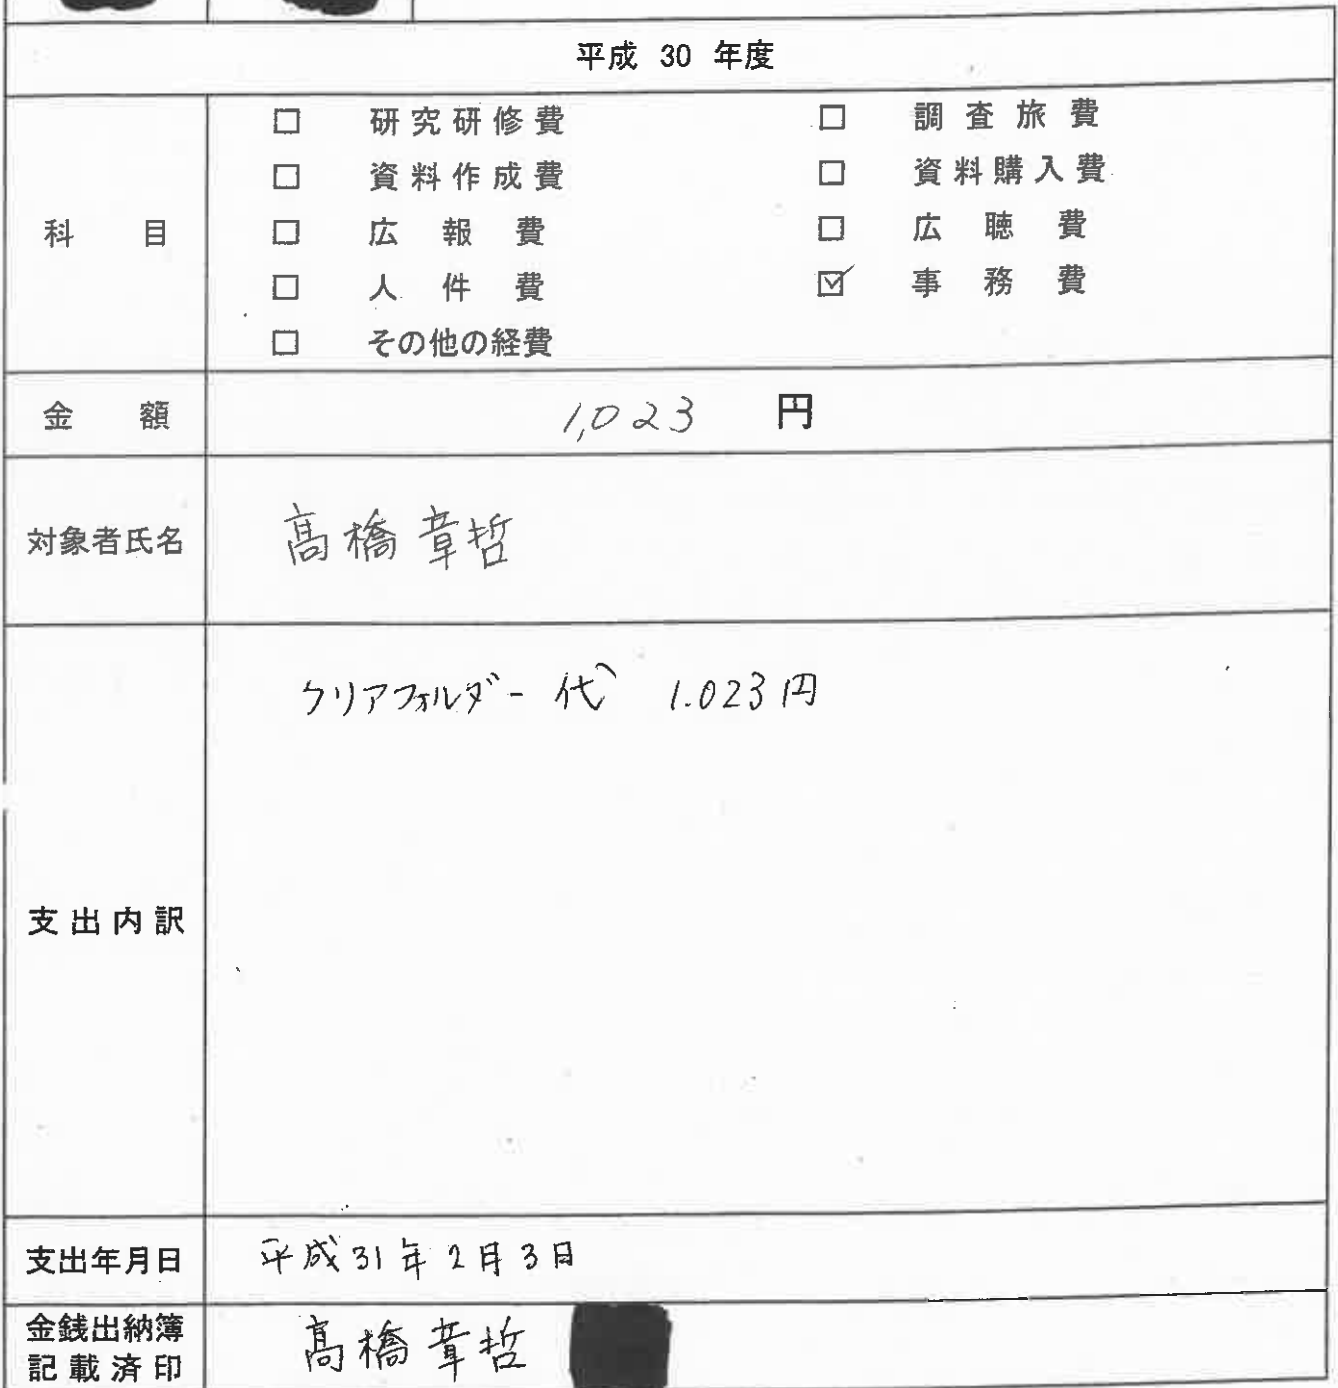 平成 30 年度
科 目
□ 研究研修費 □ 調査旅費
□ 資料作成費 □ 資料購入費
□ 広報費 □ 広聴費
□ 人件費 ☑ 事務費
□ その他の経費
金 額 1,023 円
対象者氏名 髙橋章哲
クリアフォルダー代 1.023円
支出内訳
支出年月日 平成31年2月3日
金銭出納簿
記載済印 髙橋章哲